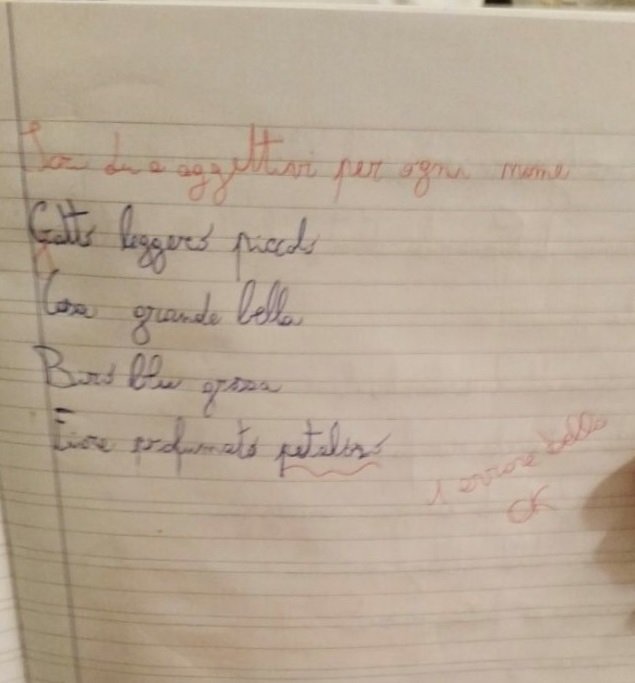 Son due aggettivi per ogni nome
Gatto leggero piccolo
Casa grande bella
Biro blu grossa
Fiore profumato petaloso
1 errore bello
OK